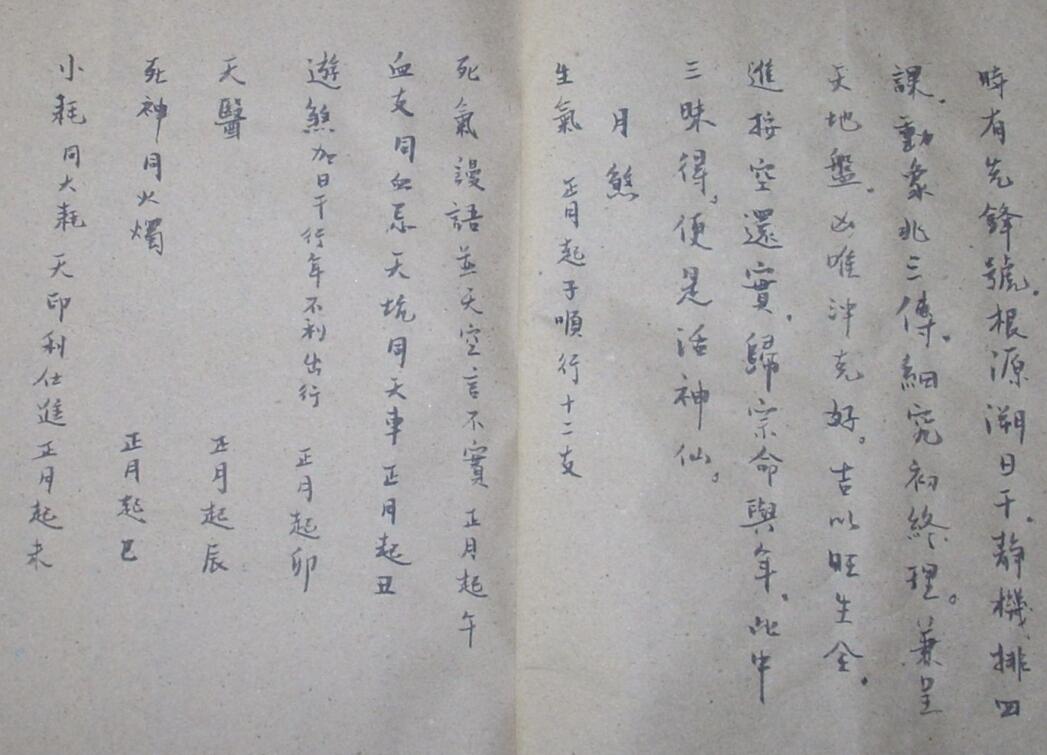 時有先鋒號。根源溯日干。靜機排四
課。動象兆三傳。細究初終理。兼呈
天地盤。凶唯沖克好。吉以旺生全。
進接空還實。歸宗命與年。此中
三昧得。便是活神仙。
月煞
生氣 正月起子順行十二支
死氣謾語並天空言不實 正月起午
血支同血忌天坑同天車正月起丑
遊煞加日干行年不利出行 正月起卯
天醫 正月起辰
死神同火燭 正月起巳
小耗同大耗 天印利仕進正月起未